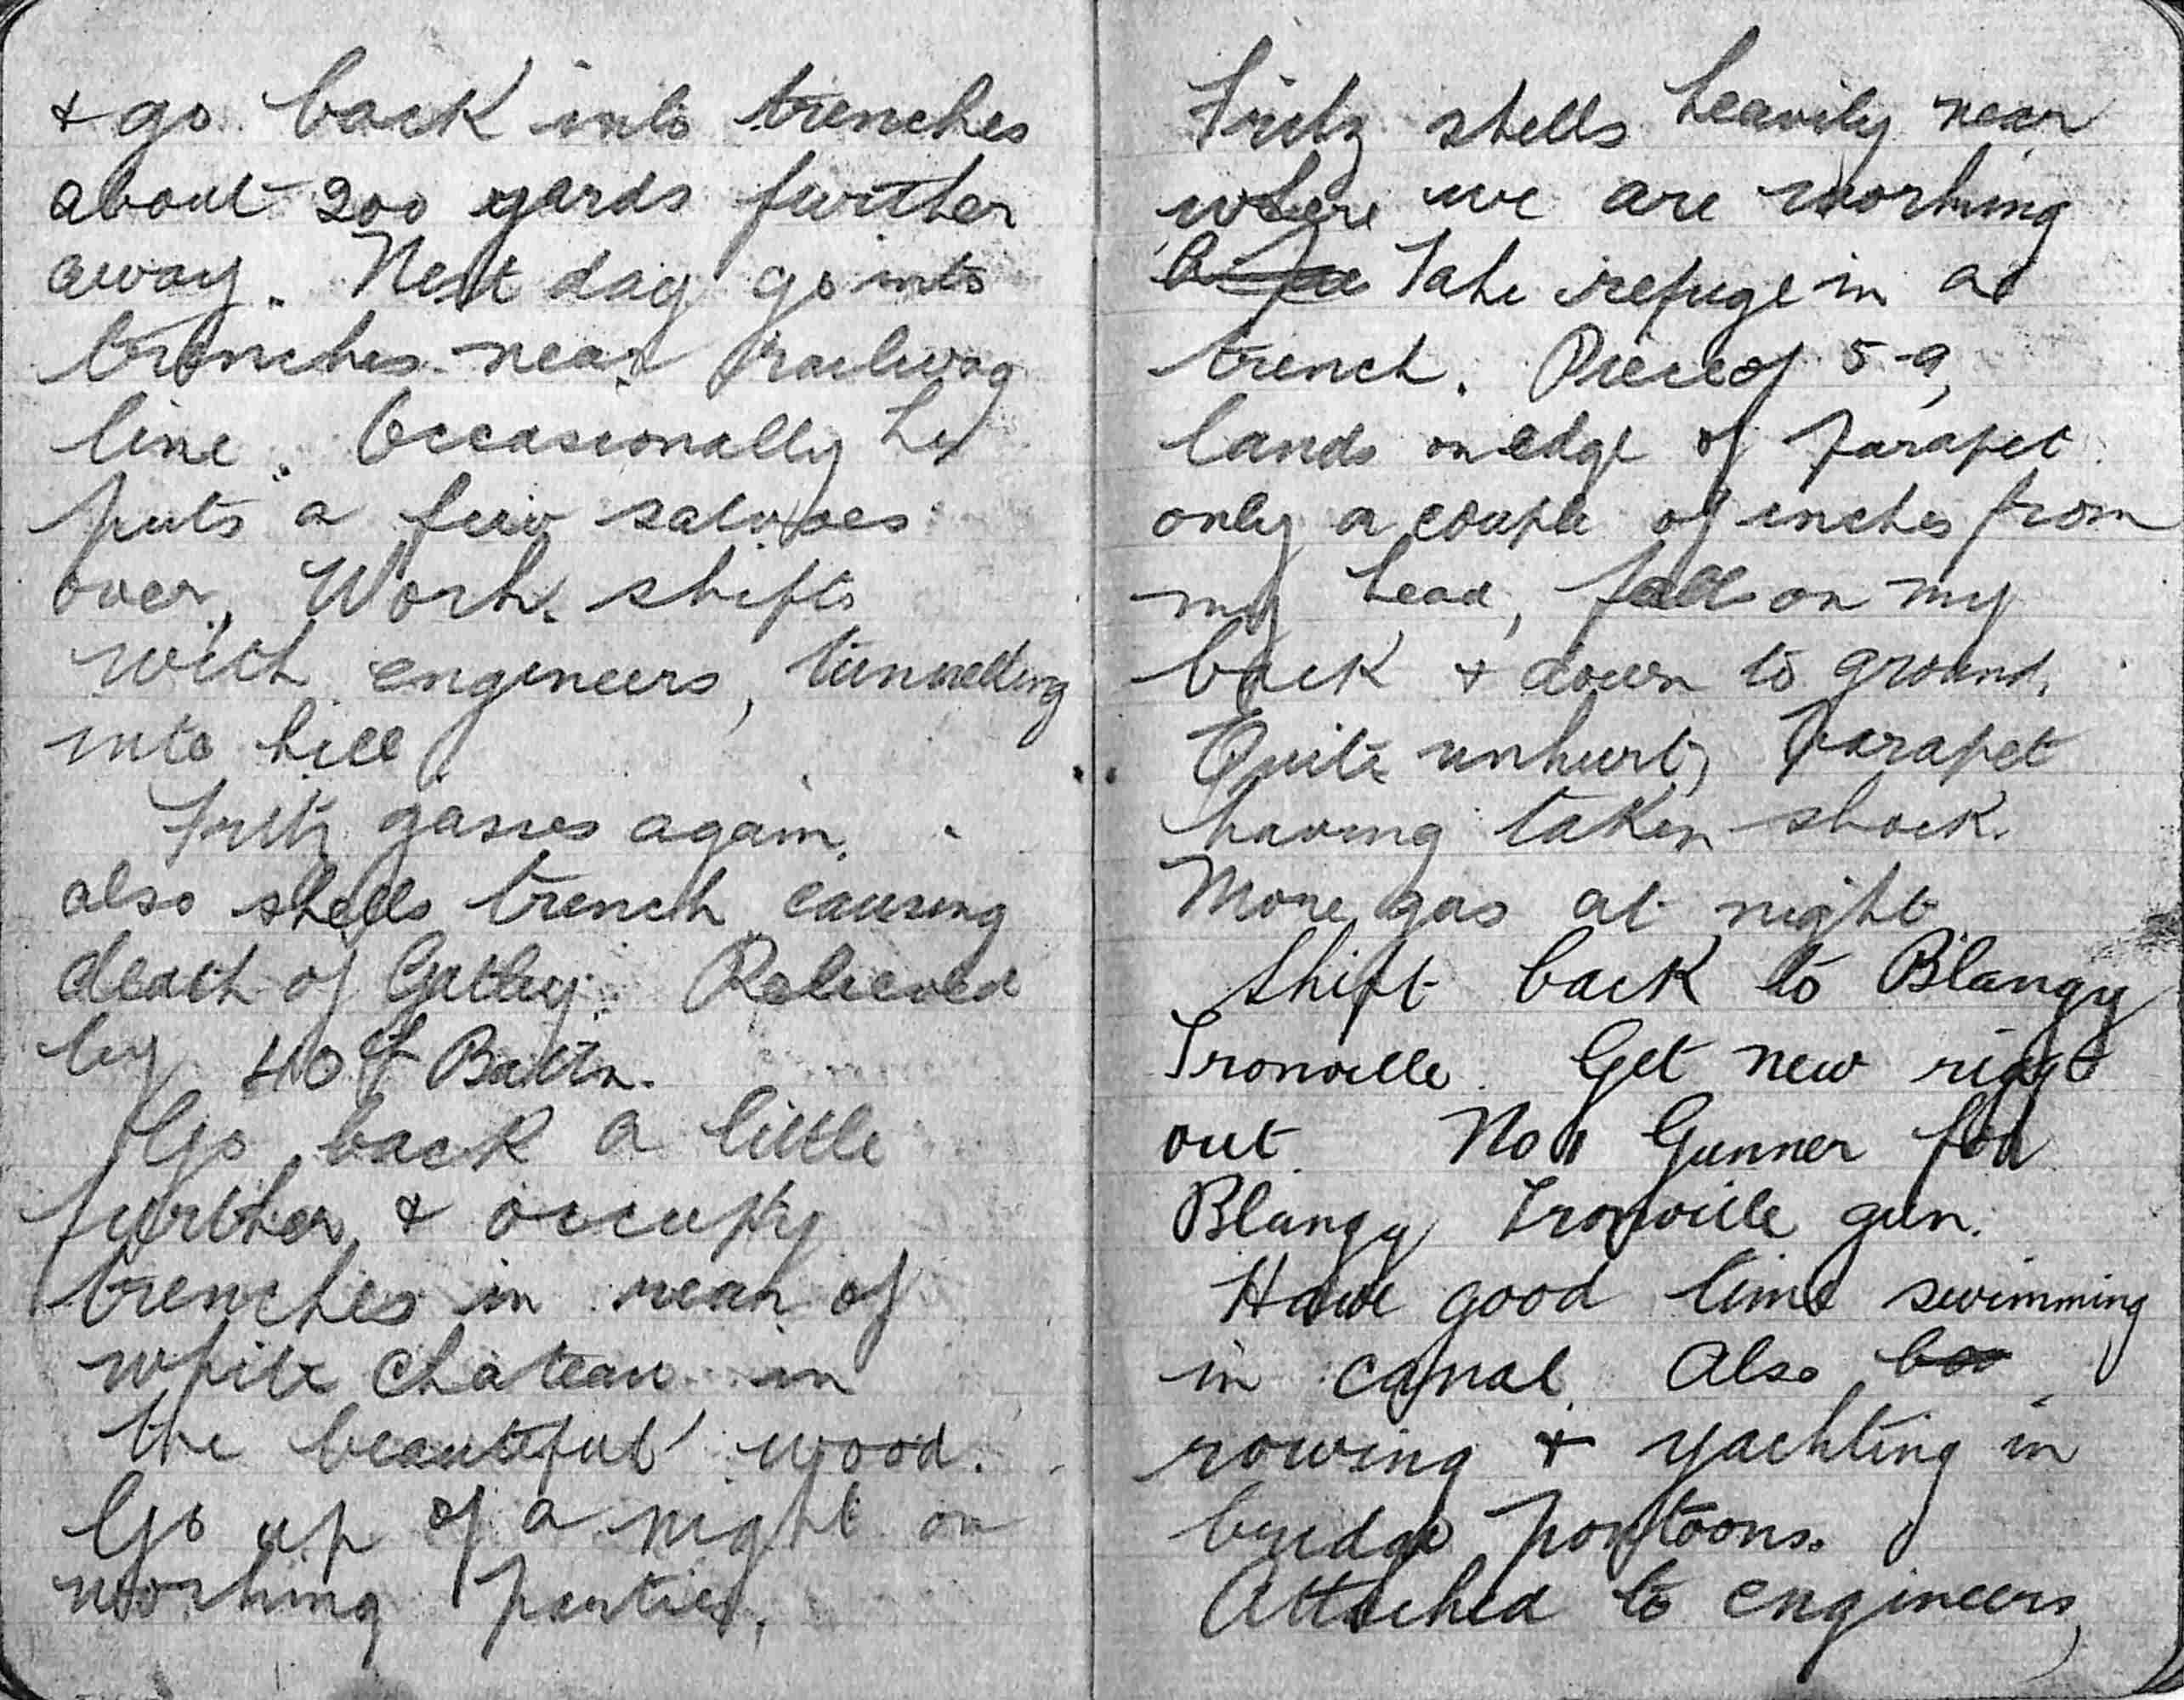 & go back into trenches
about 200 yards further
away. Next day go into
trenches near railway
line. Occasionally he
puts a few salvoes
over. Work shifts
with engineers, tunnelling
into hill
Fritz gasses again.
also shells trench causing
death of Gathy. Relieved
by 40th Battn.
Go back a little
further & occupy
trenches in rear of
white chateau in
the beautiful wood.
Go up of a night on
working parties,
Fritz shells heavily near
where we are working
Take refuge in a
trench. Piece of 5-9,
lands on edge of parapet
only a couple of inches from
my head, fall on my
back & down to ground.
Quite unhurt, parapet
having taken shock.
More gas at night
Shift back to Blangy
Tronville. Get new rig
out. No 1 Gunner for
Blangy Tronville gun.
Have good time swimming
in canal. Also bo
rowing & yachting in
bridge pontoons.
Attached to engineers,